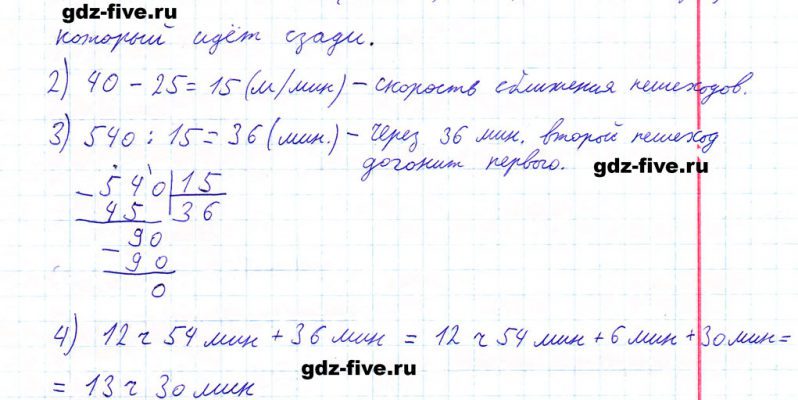 gdz-five.ru
который идёт сзади.
2) 40 - 25 = 15 (м/мин) - скорость сближения пешеходов.
3) 540 : 15 = 36 (мин.) - Через 36 мин. второй пешеход
догонит первого.
gdz-five.ru
- 540 | 15
45 36
- 90
90
0
4) 12 ч 54 мин + 36 мин = 12 ч 54 мин + 6 мин + 30 мин =
= 13 ч 30 мин
gdz-five.ru